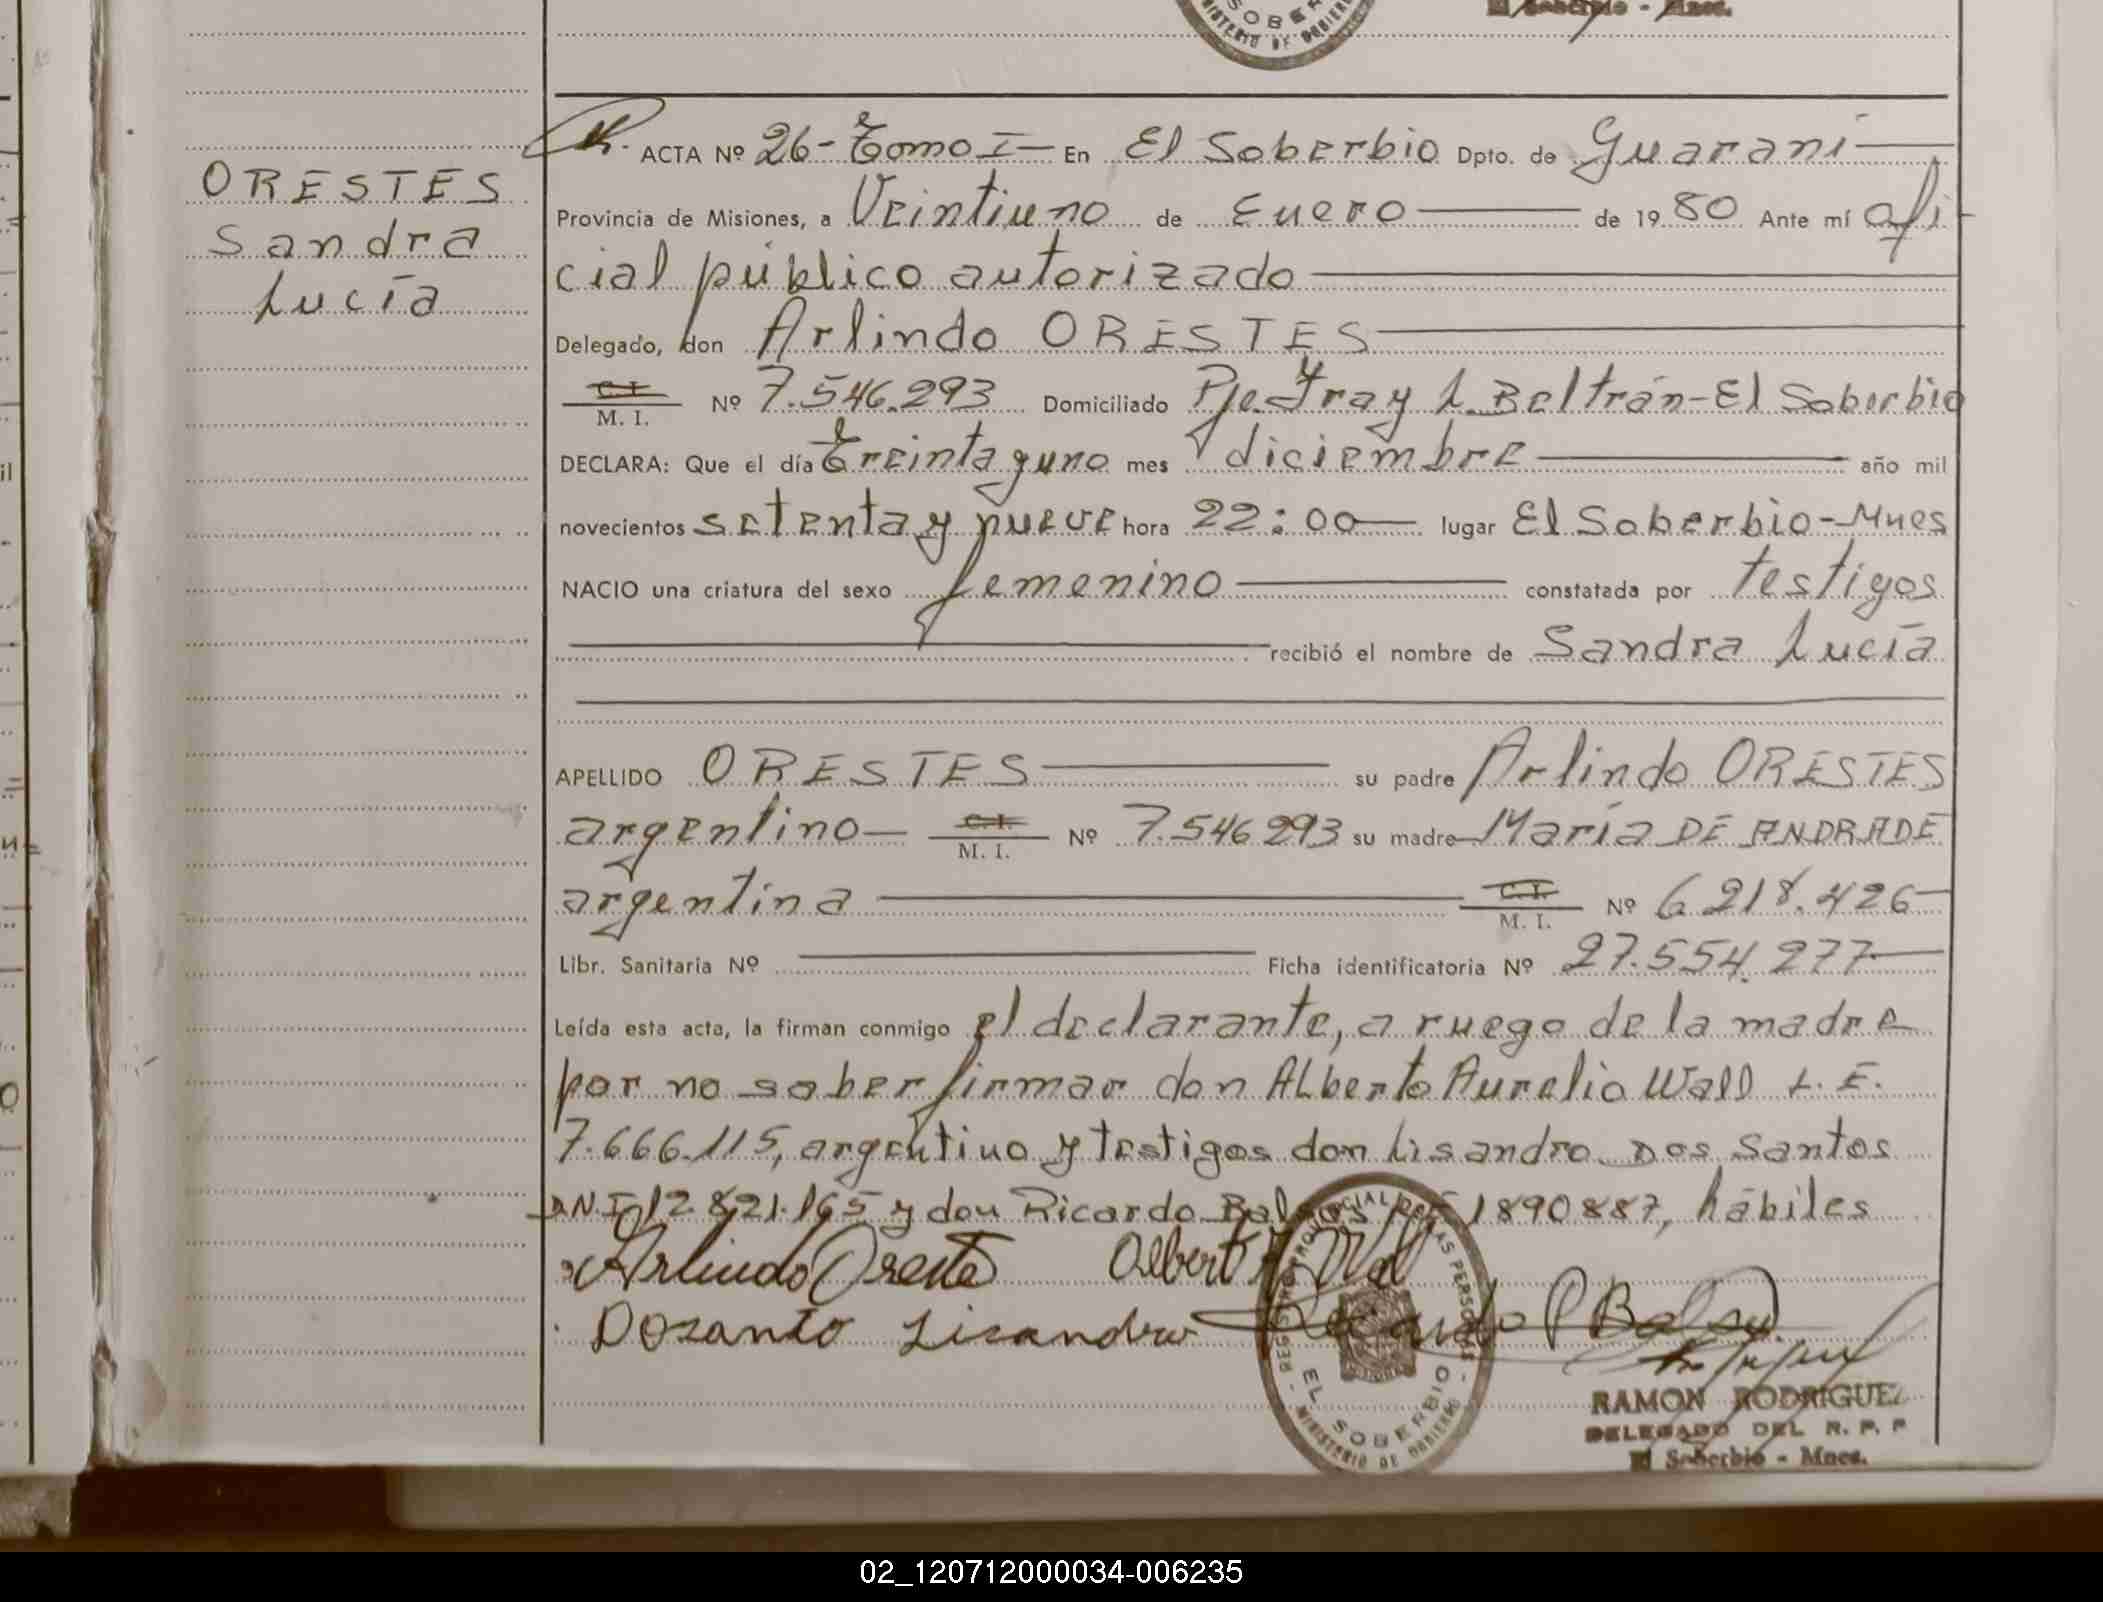 SOBER
MINISTERIO DE GOBIERNO
El Soberbio - Mnes.
ORESTES
Sandra
Lucía
ACTA Nº 26- Tomo I En El Soberbio Dpto. de Guaraní
Provincia de Misiones, a Veintiuno de Enero de 1980 Ante mí ofi
cial público autorizado
Delegado, don Arlindo ORESTES
C. I.
M. I. Nº 7.546.293 Domiciliado Pje. Fray L. Beltrán-El Soberbio
DECLARA: Que el día Treinta y uno mes diciembre año mil
novecientos setenta y nueve hora 22:00 lugar El Soberbio-Mnes
NACIO una criatura del sexo femenino constatada por testigos
recibió el nombre de Sandra Lucía
APELLIDO ORESTES su padre Arlindo ORESTES
argentino C. I. M. I. Nº 7.546293 su madre María DE ANDRADE
argentina C. I. M. I. Nº 6.218.426
Libr. Sanitaria Nº Ficha identificatoria Nº 27.554.277
Leída esta acta, la firman conmigo el declarante, a ruego de la madre
por no saber firmar don Alberto Aurelio Wall L. E.
7.666.115, argentino y testigos don Lisandro Dos Santos
D.N.I 12.821.165 y don Ricardo 1890887, hábiles
Arlindo Oreste Albert
Dozanto Lizandro
REGISTRO PROVINCIAL DE LAS PERSONAS
EL SOBERBIO
MINISTERIO DE GOBIERNO
RAMON RODRIGUEZ
DELEGADO DEL R. P. P
El Soberbio - Mnes.
02_120712000034-006235